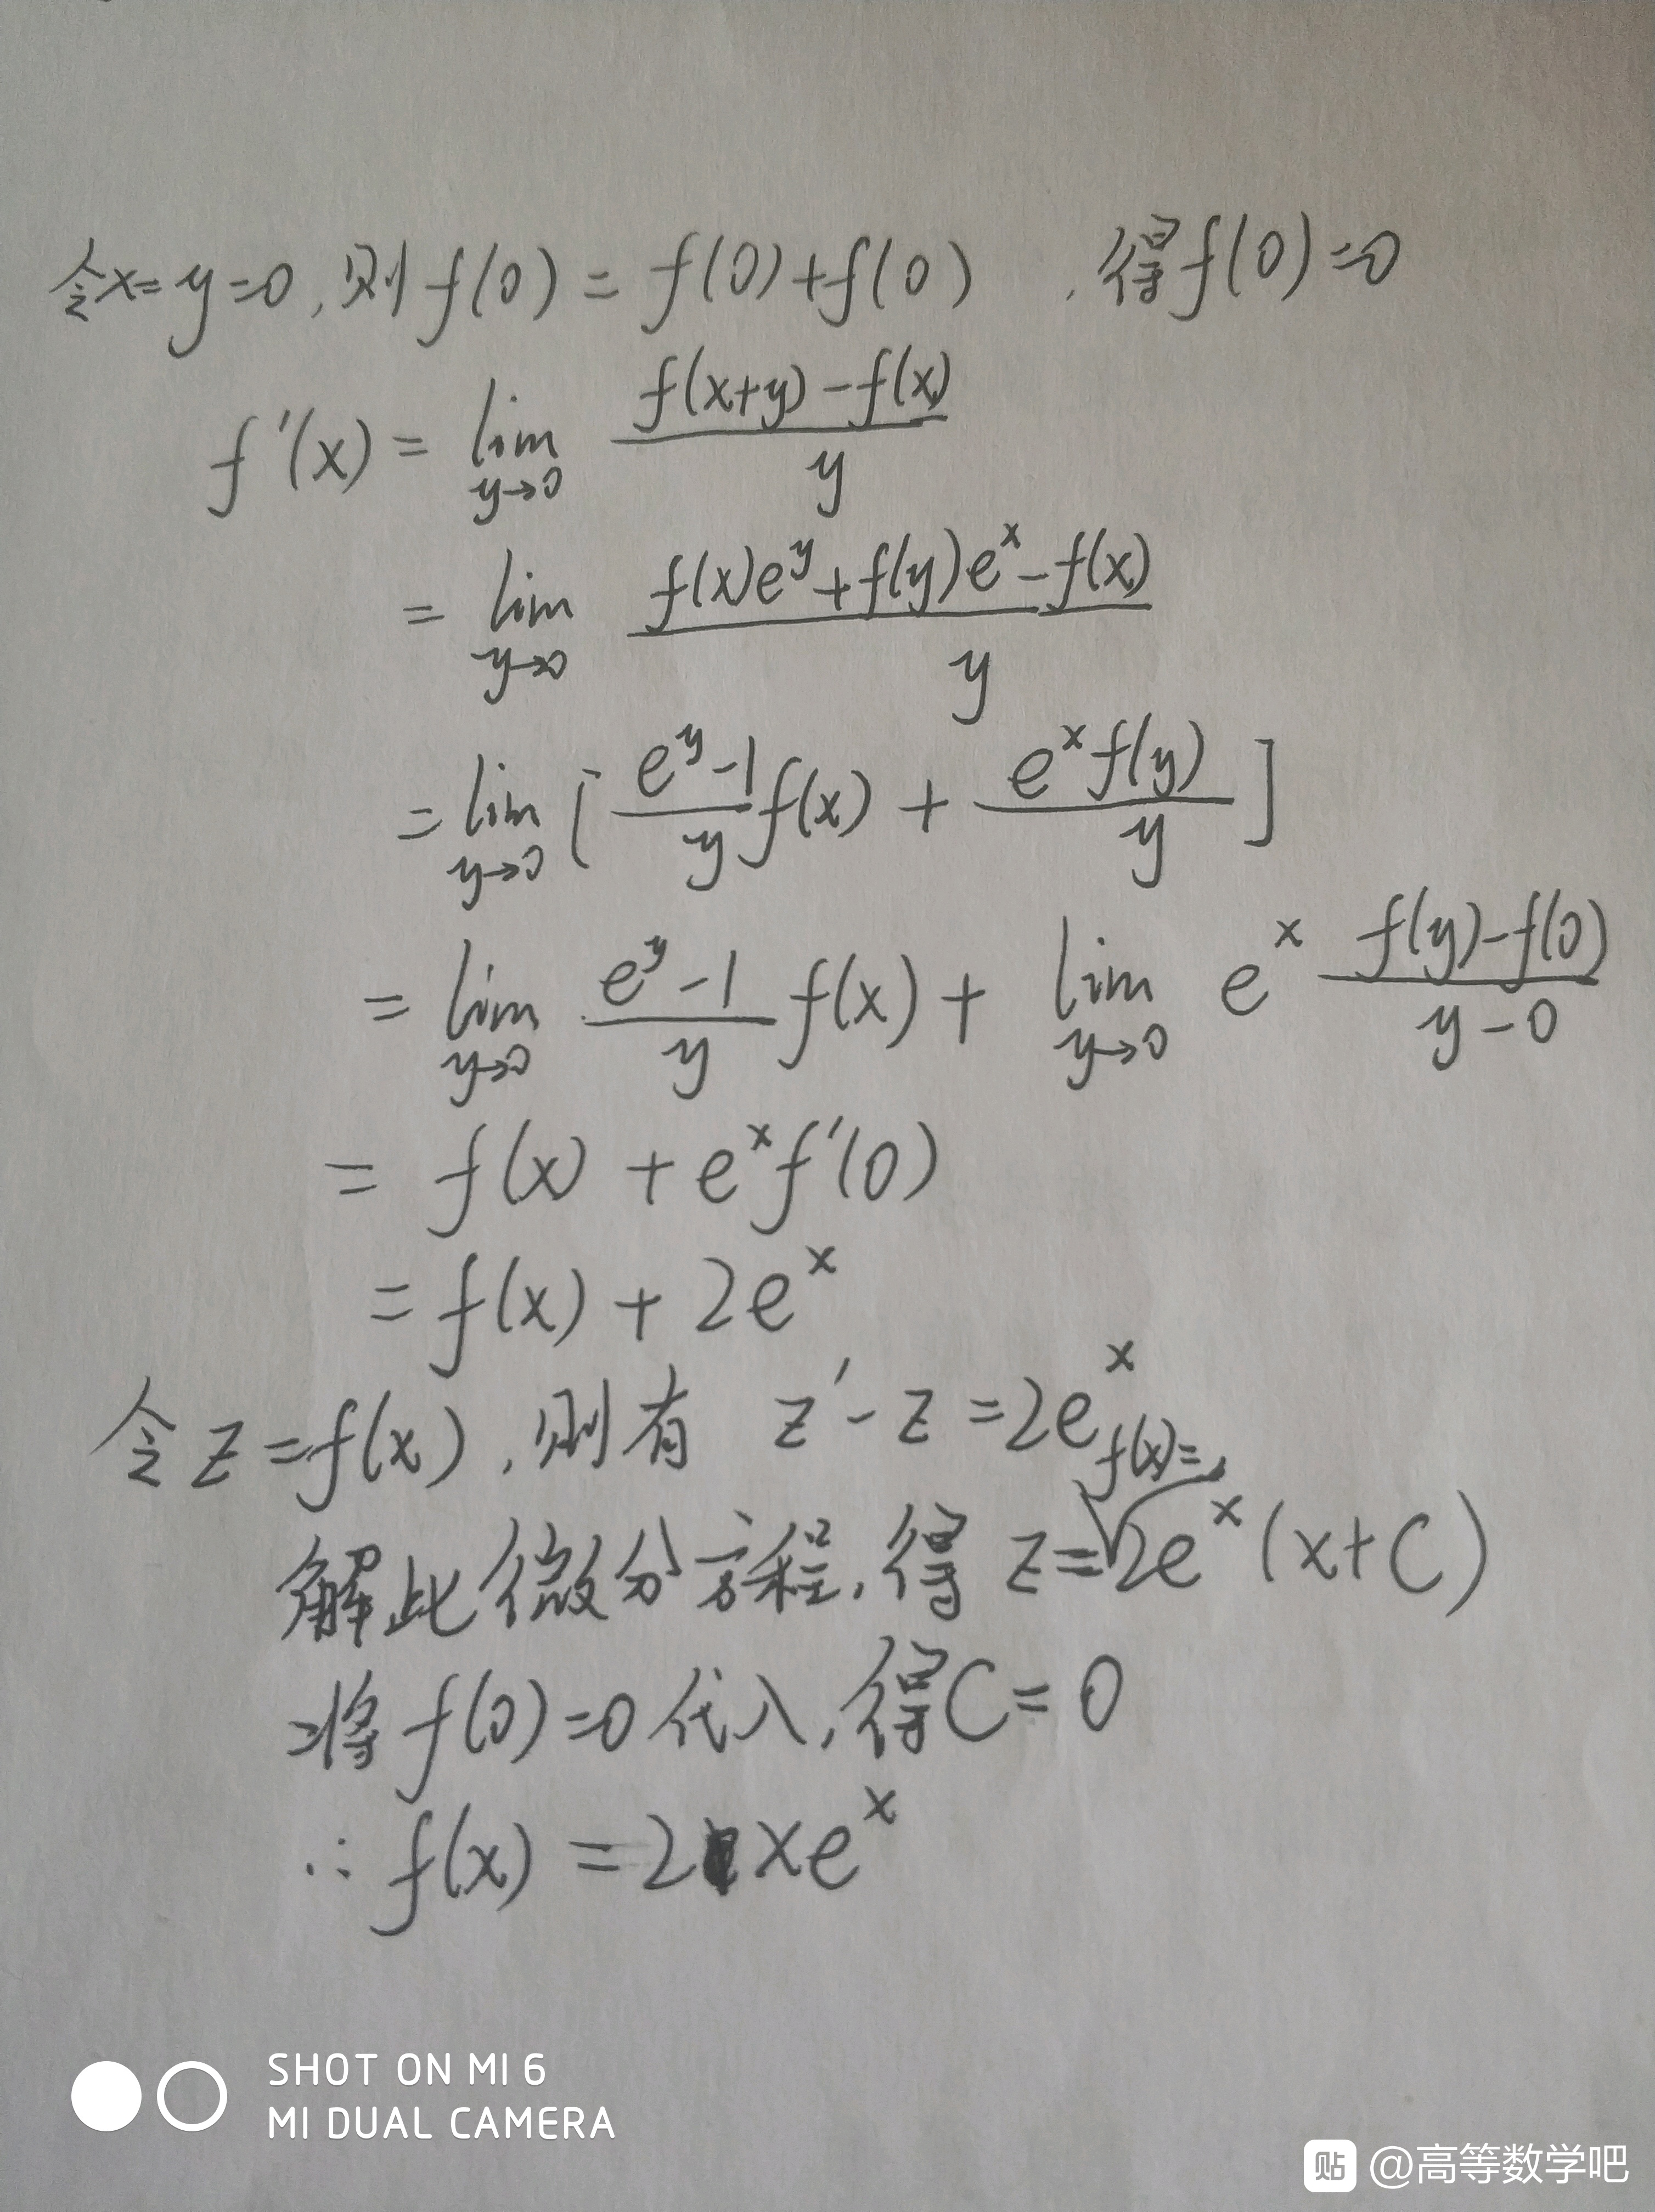 令x=y=0,则f(0)=f(0)+f(0) ,得f(0)=0
f'(x)=lim y→0 (f(x+y)-f(x))/y
=lim y→0 (f(x)e^y+f(y)e^x-f(x))/y
=lim y→0 [(e^y-1)/y f(x)+(e^x f(y))/y]
=lim y→0 (e^y-1)/y f(x)+lim y→0 e^x (f(y)-f(0))/(y-0)
=f(x)+e^x f'(0)
=f(x)+2e^x
令z=f(x),则有 z'-z=2e^x
解此微分方程,得 z=f(x)=2e^x(x+C)
将f(0)=0代入,得C=0
∴f(x)=2xe^x
SHOT ON MI 6
MI DUAL CAMERA
贴 @高等数学吧